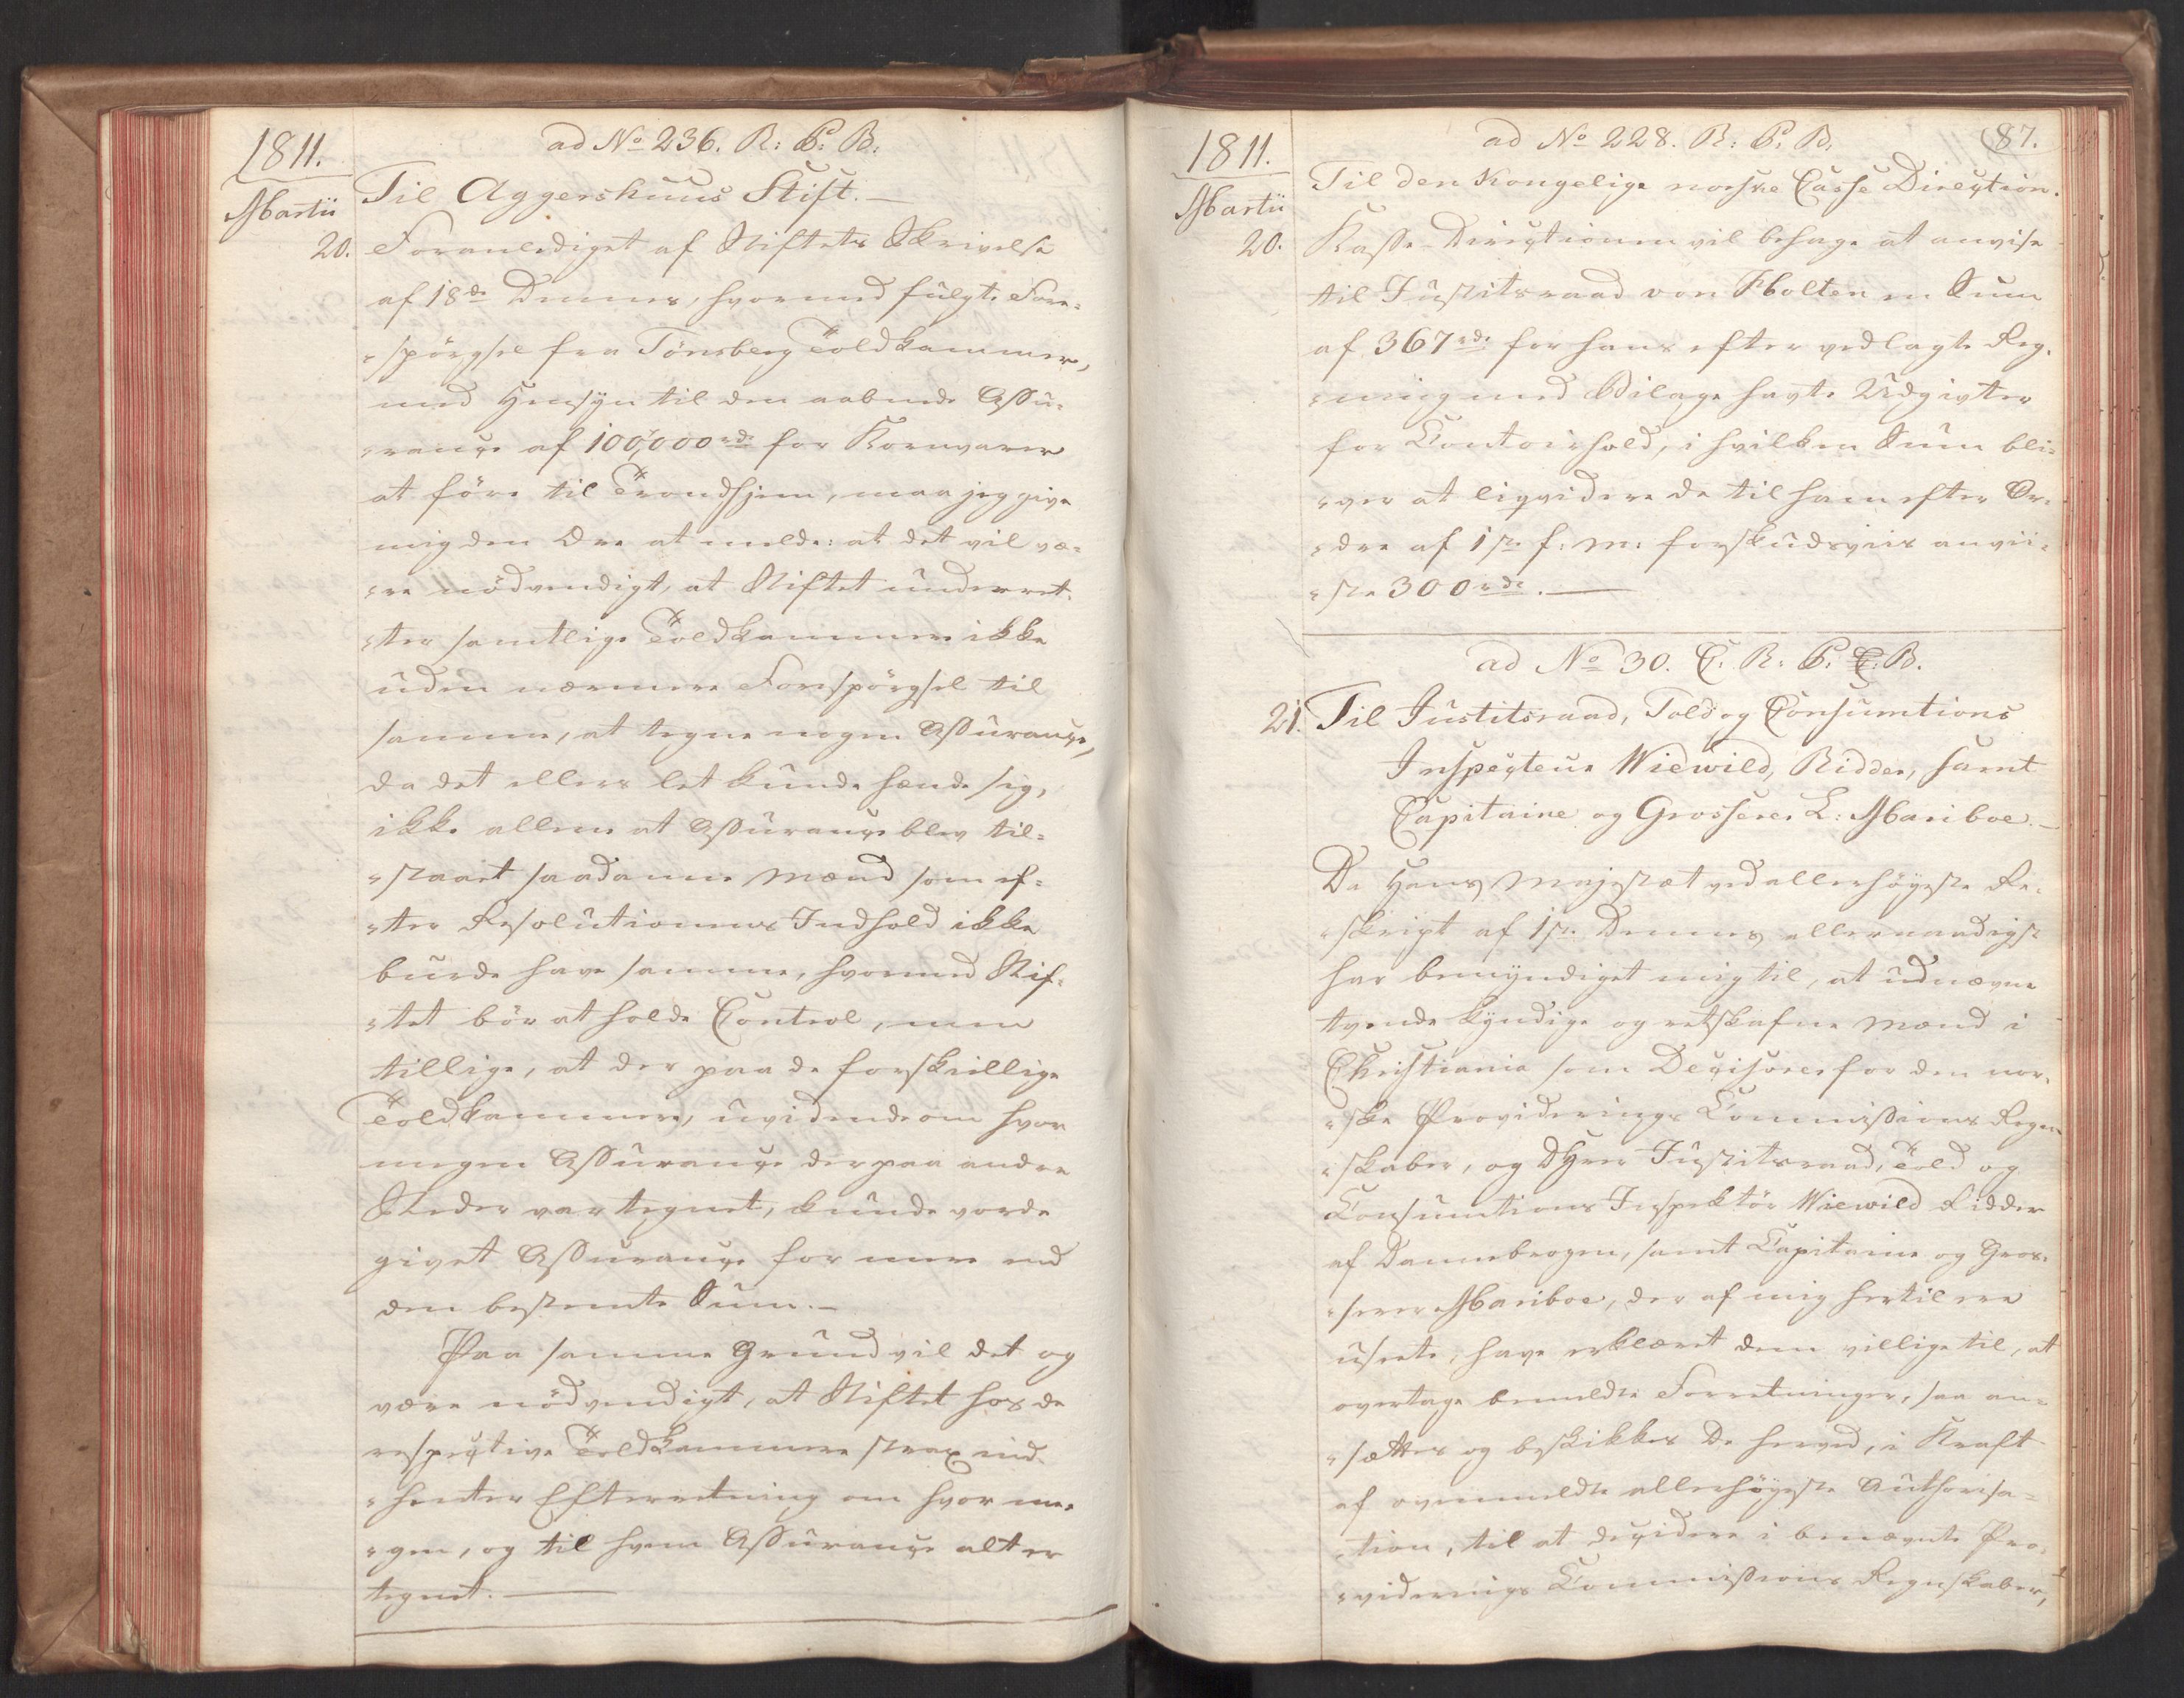 1811.
ad No 236. R: P: B:
Martii
Til Aggershuus Stift. —
20.
Foranlediget af Stiftets Skrivelse
af 18de Dennes, hvormed fulgte Fore-
-spörgsel fra Tönsberg Toldkammer,
med Hensyn til den aabnede Assu-
-rance af 100,000 rd. for Kornvarer
at före til Trondhjem, maa jeg give
mig den Ære at melde: at det vil væ-
-re nödvendigt, at Stiftet underret-
-ter samtlige Toldkammere ikke
uden nærmere Forespörgsel til
samme, at tegne nogen Assurance,
da det ellers let kunde hænde sig,
ikke allene at Assurance blev til-
-staaet saadanne Mænd som ef-
-ter Resolutionens Indhold ikke
burde have samme, hvormed Stif-
-tet bör at holde Control, men
tillige, at der paa de forskiellige
Toldkammere, uvidende om hvor
megen Assurance der paa andre
Steder var tegnet, kunde vorde
givet Assurance for mere end
den bestemte Sum. —
Paa samme Grund vil det og
være nödvendigt, at Stiftet hos de
respective Toldkammere strax ind-
-henter Efterretning om hvor me-
-gen, og til hvem Assurance alt er
tegnet. —
1811.
ad No 228. R: P: B.
87.
Martii
Til den Kongelige norske Casse Direction.
20.
Kasse-Directionen vil behage at anvise
til Justitsraad von Holten en Sum
af 367 rd. for hans efter vedlagte Reg-
-ning med Bilage havte Udgivter
for Contoirhold, i hvilken Sum bli-
-ver at liqvidere de til ham efter Or-
-dre af 1ste f: M: forskudsviis anvii-
-ste 300 rd. —
ad No 30. C. R: P: C: B.
21.
Til Justitsraad, Told og Consumtions
Inspecteur Wiewild, Ridder, samt
Capitaine og Grosserer L: Mariboe. —
Da Hans Majestæt ved allerhöyeste Re-
-skript af 1ste Dennes allernaadigst
har bemyndiget mig til, at udnævne
tvende kyndige og retskafne Mænd i
Christiania som Decisorer for den nor-
-ske Providerings Commissions Regn-
-skaber, og DHrr Justitsraad, Told og
Consumtions Inspektör Wiewild Ridder
af Dannebrogen, samt Capitaine og Gros-
-serer Mariboe, der af mig hertil ere
udseete, have erklæret dem villige til, at
overtage bemeldte Forretninger, saa an-
-sættes og beskikkes De herved, i Kraft
af ovenmeldte allerhöyeste Authorisa-
-tion, til at decidere i benævnte Pro-
-viderings Commissions Regnskaber,